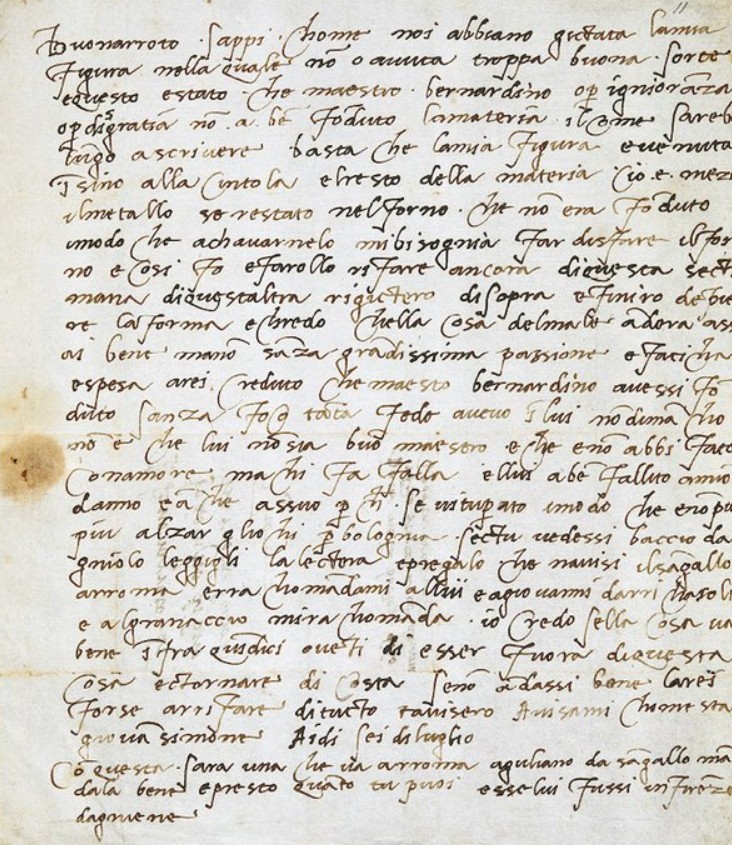 Buonarroto · sappi · chome noi abbiano gictata lamia
figura nella quale nō o avuta troppa buona · sorte
e questo estato · che maestro · bernardino o p̱ igniorāza
o p̱ disgratia nō · a · bē fōduto lamateria · il come sareb
lūgo a scrivere basta che lamia figura e venuta
ī sino alla cintola el resto della materia cio e · mez
il metallo se restato nel forno · che nō era fōduto
imodo che a chavarnelo mi bisognia far disfare il for
no e cosi fo e farollo rifare ancora di questa secti
mana di questaltra rigictero di sopra e finiro
re la forma e chredo chella cosa del male adera ass
ai bene ma nō sāza grādissima passione e faticha
e spesa arei creduto che maesto bernardino avessi fō
duto sanza foco tāta fede avevo ī lui nōdimā cho
nō e che lui nō sia buō maestro e che e nō abbi facto
con amore ma chi fa falla e llui a bē fallito a mio
danno e a che a ssuo p̱ chē se vitup̱ato imodo che e nō pu
piu alzar gli ochi p̱ bologna · se ctu vedessi baccio da
gniolo leggigli la lectera e p̱regalo che navisi il sāgallo
a rroma e rrachomādami a llui e a giovanni da rrichasoli
e al granaccio mi rachomāda · io credo se lla cosa va
bene ī fra quīdici o vēti dī esser fuora di questa
cosa e ctornare di costa se nō ādassi bene larei
forse a rrifare di tucto tavisero Avisami chome sta
giovā simone A di sei di luglio
Cō questa · sara una che va a rroma a guliano da sāgallo mā
dala bene e presto quāto tu puoi e sse lui fussi in firenze
dagniene